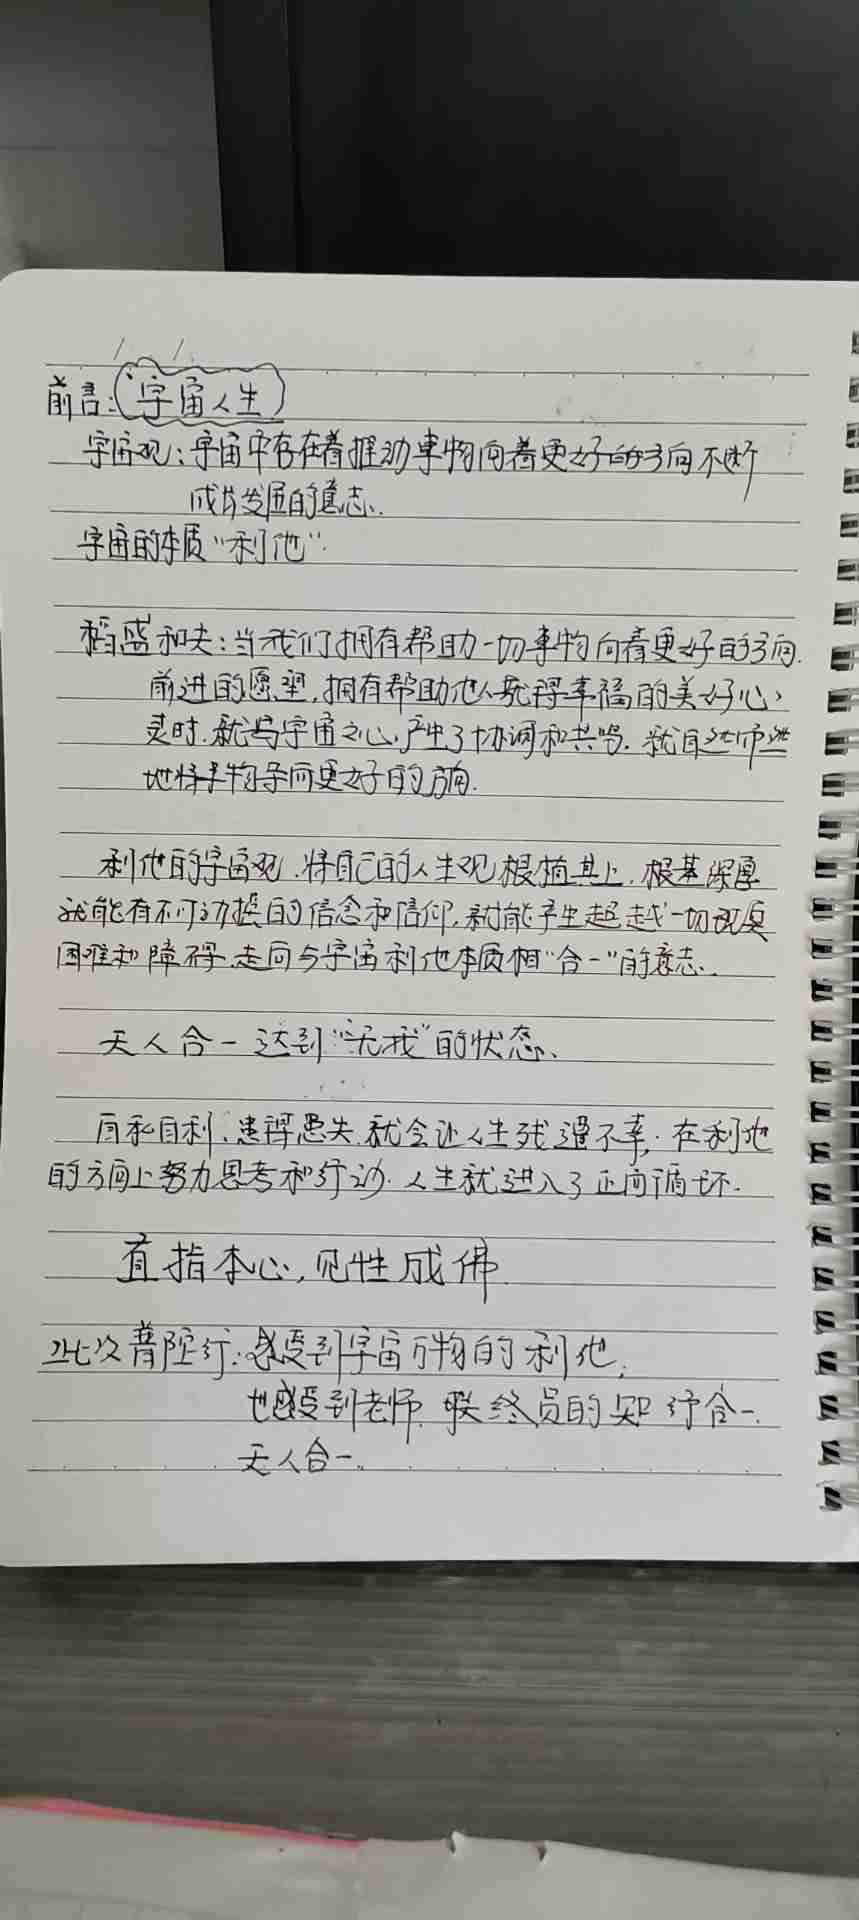 前言：宇宙人生
宇宙观：宇宙中存在着推动事物向着更好的方向不断
成长发展的意志.
宇宙的本质“利他”.
稻盛和夫：当我们拥有帮助一切事物向着更好的方向.
前进的愿望,拥有帮助他人获得幸福的美好心、
灵时.就与宇宙之心.产生了协调和共鸣.就自然而然
地将事物导向更好的方向.
利他的宇宙观.将自己的人生观根植其上.根基深厚
就能有不可动摇的信念和信仰.就能产生超越一切
困难和障碍.走向与宇宙利他本质相“合一”的意志.
天人合一 达到“无我”的状态、
自私自利、患得患失.就会让人生残遭不幸.在利他
的方向上努力思考和行动.人生就进入了正向循环.
直指本心,见性成佛
此次普陀行：感受到宇宙万物的利他;
也感受到老师.联终员的知行合一.
天人合一.